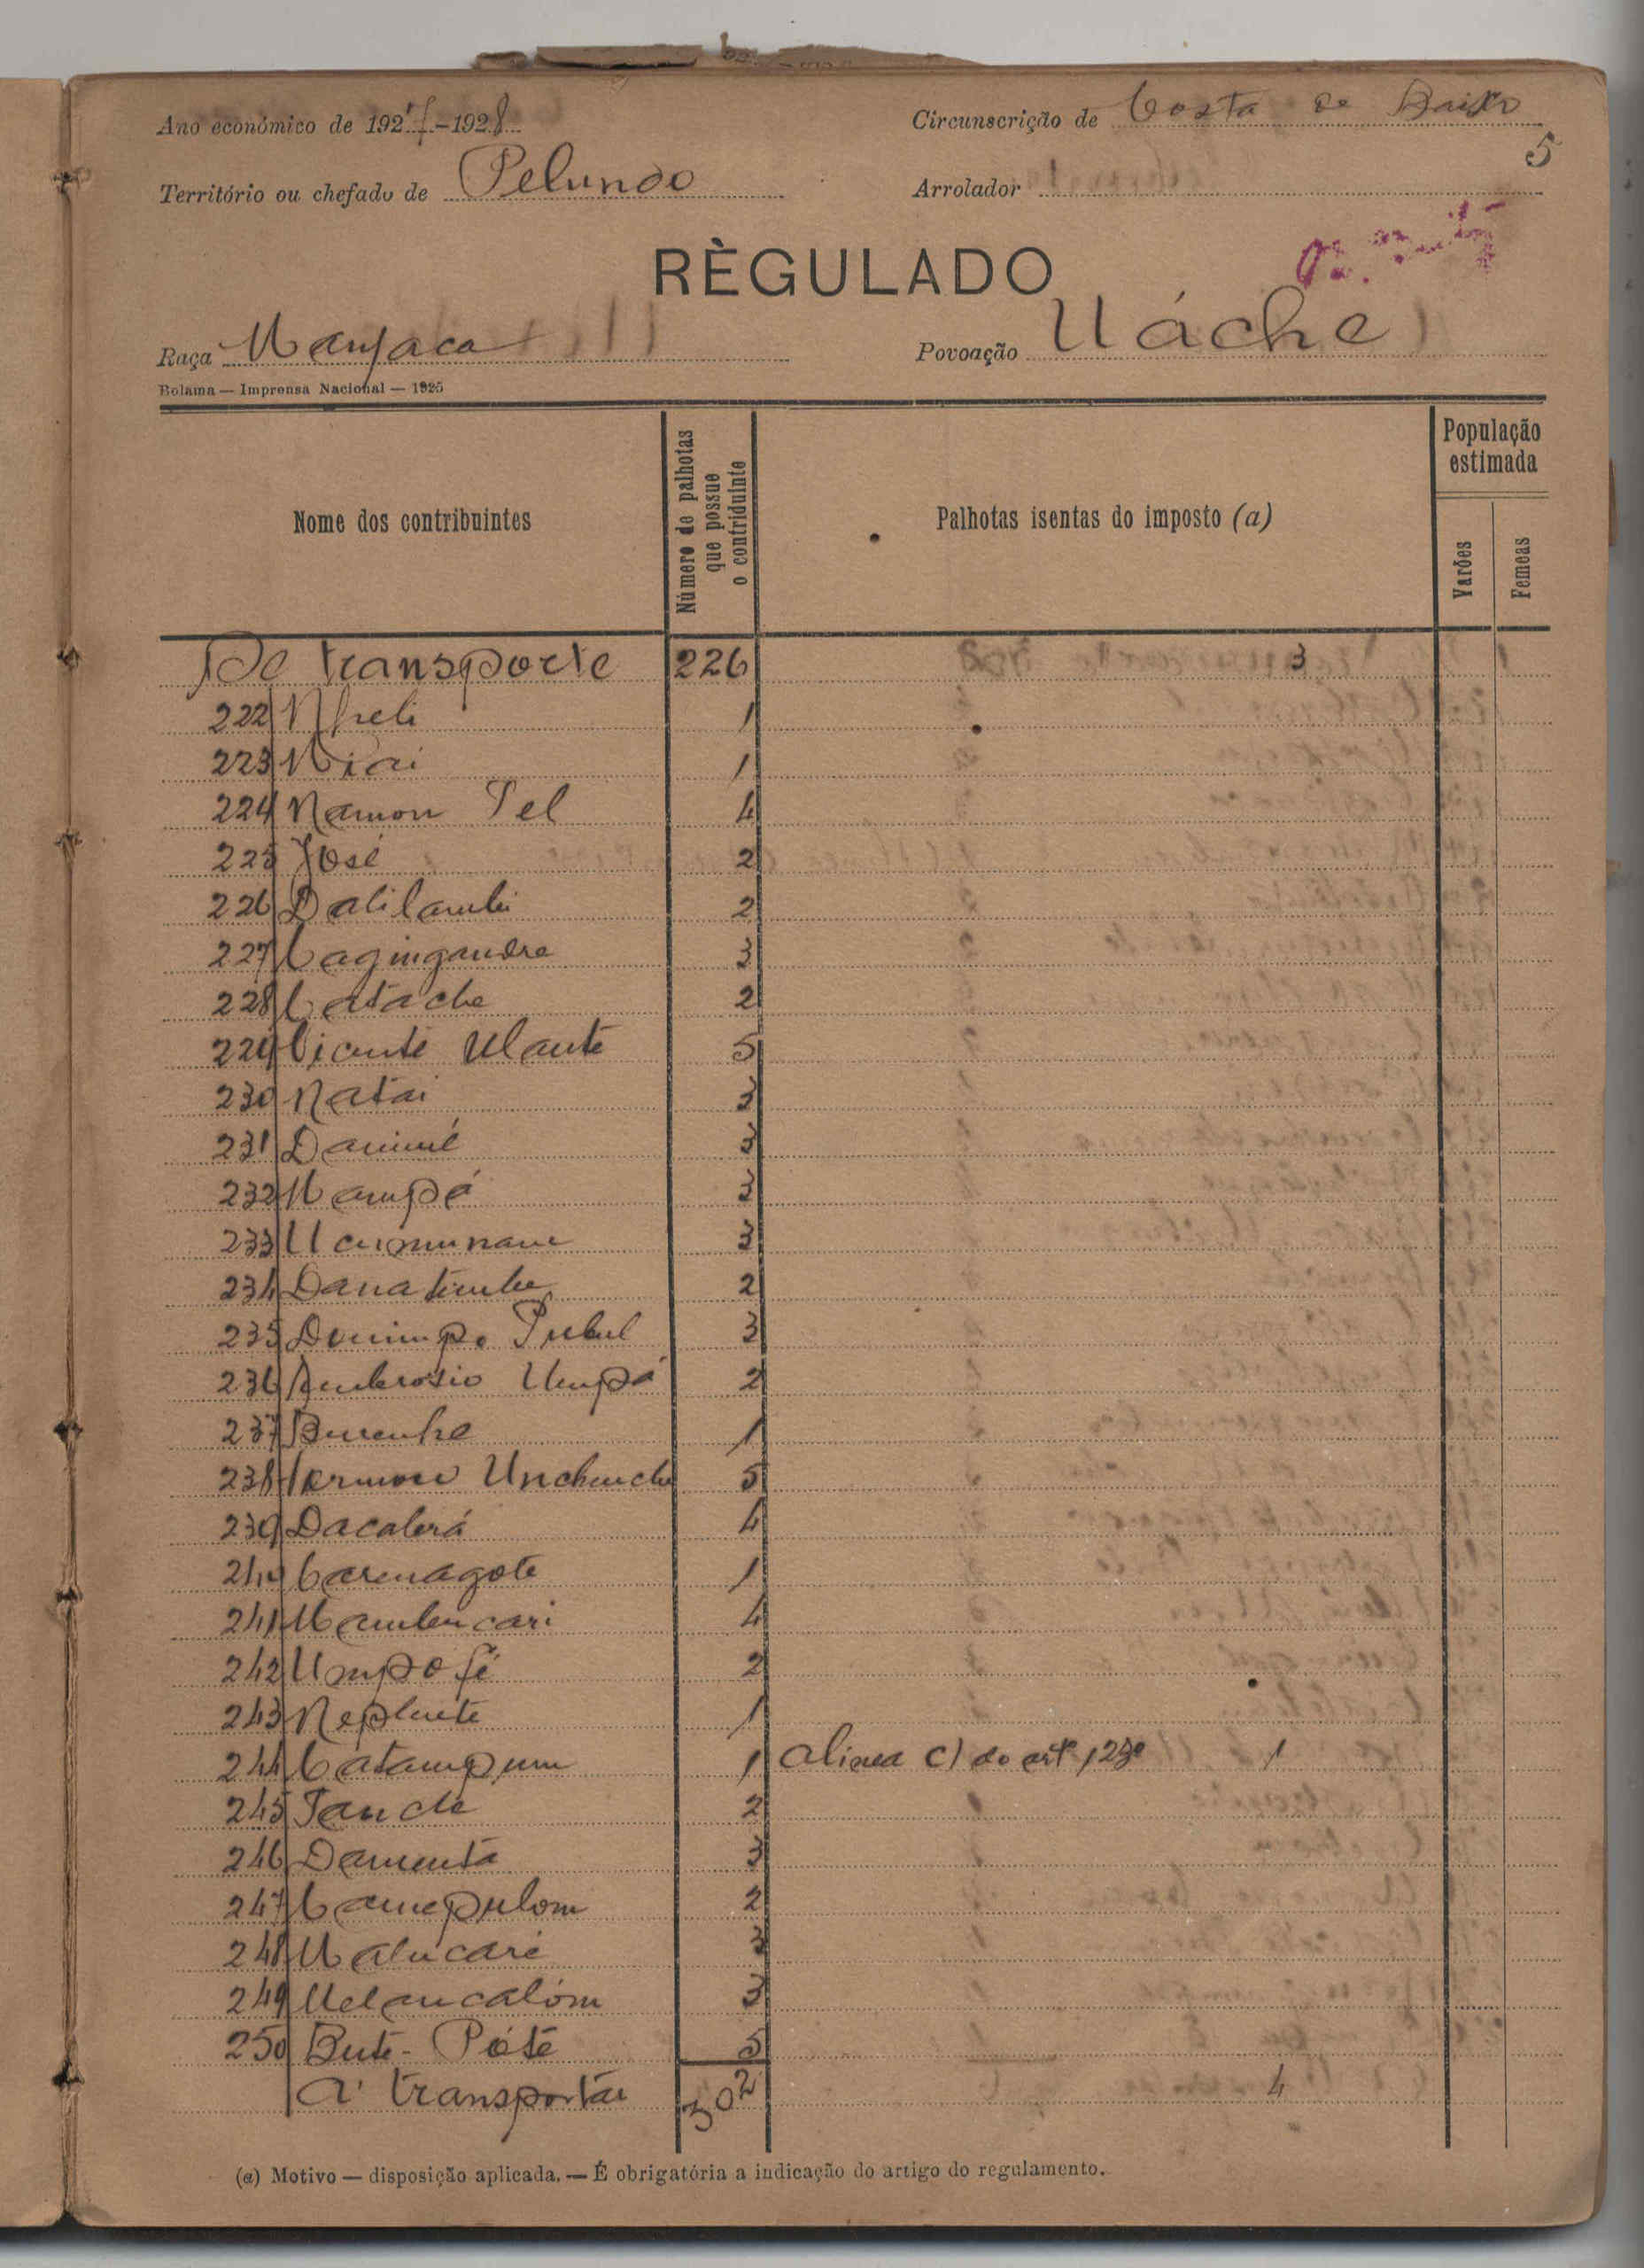 Ano económico de 1927-1928
Circunscrição de Costa de Baixo
5
Território ou chefado de Pelundo
Arrolador
RÈGULADO
Raça Manjaca
Povoação Uáche
Bolama — Imprensa Nacional — 1925
Nome dos contribuintes
Número de palhotas que possue o contriduinte
Palhotas isentas do imposto (a)
População estimada
Varões
Femeas
De transporte 226 3
222 1
223 1
224 Namon Pel 4
225 José 2
226 Dalilambi 2
227 Cagingandra 3
228 Catache 2
229 Vicente Ulante 5
230 Natai 3
231 3
232 Mampé 3
233 3
234 Danatimbe 2
235 Pubul 3
236 Ambrosio Umpá 2
237 1
238 Unchunche 5
239 Dacaberá 4
240 Caremagote 1
241 Mambucari 4
242 Umpofé 2
243 1
244 Catampum 1 Alinea c) do artº 123º 1
245 2
246 Damenta 3
247 Camepulom 2
248 Malucaré 3
249 3
250 Bute-Póte 5
A transportar 302 4
(a) Motivo — disposição aplicada. — É obrigatória a indicação do artigo do regulamento.